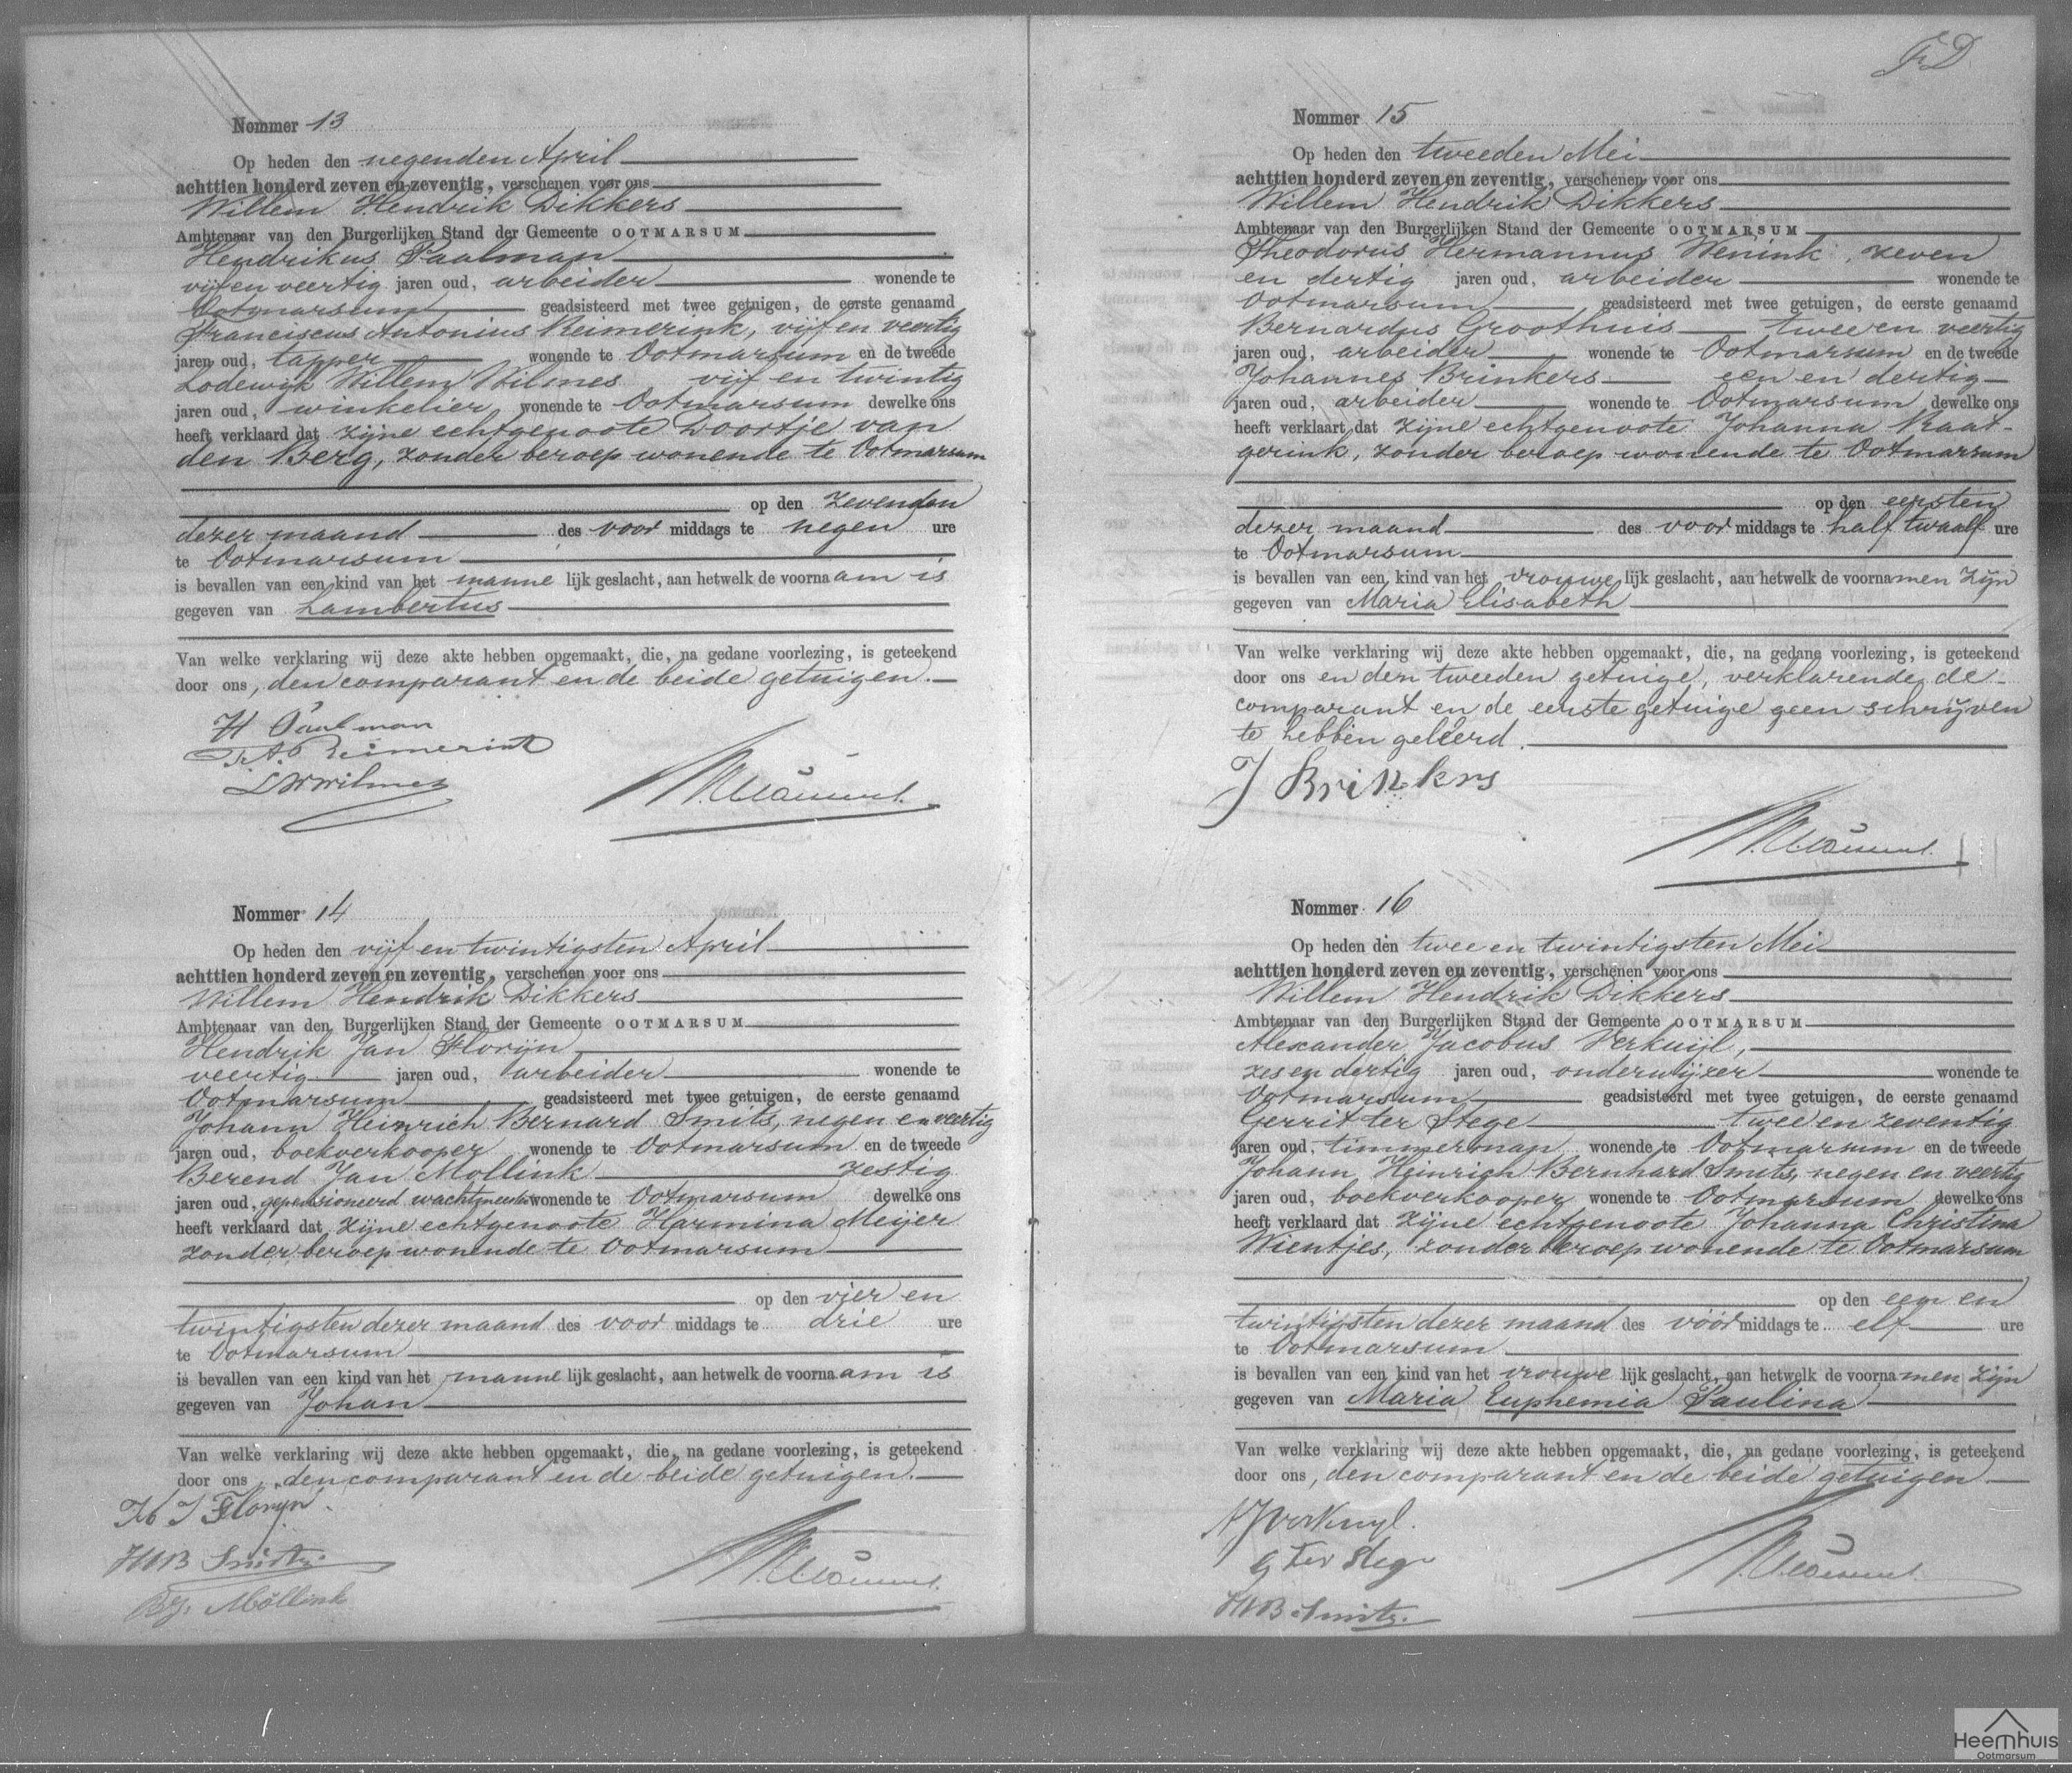 Nommer 13
Op heden den negenden April
achttien honderd zeven en zeventig, verschenen voor ons
Willem Hendrik Dikkers
Ambtenaar van den Burgerlijken Stand der Gemeente OOTMARSUM
Hendrikus Paalman
vijf en veertig jaren oud, arbeider wonende te
Ootmarsum geadsisteerd met twee getuigen, de eerste genaamd
Franciscus Antonius Reimerink, vijf en veertig
jaren oud, tapper wonende te Ootmarsum en de tweede
Lodewijk Willem Wilmes vijf en twintig
jaren oud, winkelier wonende te Ootmarsum dewelke ons
heeft verklaard dat zijne echtgenoote Doortje van
den Berg, zonder beroep wonende te Ootmarsum
op den zevenden
dezer maand des voor middags te negen ure
te Ootmarsum
is bevallen van een kind van het manne lijk geslacht, aan hetwelk de voornaam is
gegeven van Lambertus
Van welke verklaring wij deze akte hebben opgemaakt, die, na gedane voorlezing, is geteekend
door ons, den comparant en de beide getuigen.
H Paalman
F.A. Reimerink
L W Wilmes
Nommer 14
Op heden den vijf en twintigsten April
achttien honderd zeven en zeventig, verschenen voor ons
Willem Hendrik Dikkers
Ambtenaar van den Burgerlijken Stand der Gemeente OOTMARSUM
Hendrik Jan Florijn
veertig jaren oud, arbeider wonende te
Ootmarsum geadsisteerd met twee getuigen, de eerste genaamd
Johann Heinrich Bernard Smits, negen en veertig
jaren oud, boekverkooper wonende te Ootmarsum en de tweede
Berend Jan Mollink zestig
jaren oud, gepensioneerd wachtmeester wonende te Ootmarsum dewelke ons
heeft verklaard dat zijne echtgenoote Harmina Meijer
zonder beroep wonende te Ootmarsum
op den vier en
twintigsten dezer maand des voor middags te drie ure
te Ootmarsum
is bevallen van een kind van het manne lijk geslacht, aan hetwelk de voornaam is
gegeven van Johan
Van welke verklaring wij deze akte hebben opgemaakt, die, na gedane voorlezing, is geteekend
door ons, den comparant en de beide getuigen.
H J Florijn
JHB Smits
BJ. Möllink
Nommer 15
Op heden den tweeden Mei
achttien honderd zeven en zeventig, verschenen voor ons
Willem Hendrik Dikkers
Ambtenaar van den Burgerlijken Stand der Gemeente OOTMARSUM
Theodorus Hermannus Wenink, zeven
en dertig jaren oud, arbeider wonende te
Ootmarsum geadsisteerd met twee getuigen, de eerste genaamd
Bernardus Groothuis twee en veertig
jaren oud, arbeider wonende te Ootmarsum en de tweede
Johannes Brinkers een en dertig
jaren oud, arbeider wonende te Ootmarsum dewelke ons
heeft verklaart dat zijne echtgenoote Johanna Raat-
gerink, zonder beroep wonende te Ootmarsum
op den eersten
dezer maand des voor middags te half twaalf ure
te Ootmarsum
is bevallen van een kind van het vrouwe lijk geslacht, aan hetwelk de voornamen zijn
gegeven van Maria Elisabeth
Van welke verklaring wij deze akte hebben opgemaakt, die, na gedane voorlezing, is geteekend
door ons en den tweeden getuige, verklarende de
comparant en de eerste getuige geen schrijven
te hebben geleerd.
J Brinkers
Nommer 16
Op heden den twee en twintigsten Mei
achttien honderd zeven en zeventig, verschenen voor ons
Willem Hendrik Dikkers
Ambtenaar van den Burgerlijken Stand der Gemeente OOTMARSUM
Alexander Jacobus Verkuijl,
zes en dertig jaren oud, onderwijzer wonende te
Ootmarsum geadsisteerd met twee getuigen, de eerste genaamd
Gerrit ter Stege twee en zeventig
jaren oud, timmerman wonende te Ootmarsum en de tweede
Johann Heinrich Bernhard Smits, negen en veertig
jaren oud, boekverkooper wonende te Ootmarsum dewelke ons
heeft verklaard dat zijne echtgenoote Johanna Christina
Wientjes, zonder beroep wonende te Ootmarsum
op den een en
twintigsten dezer maand des vóór middags te elf ure
te Ootmarsum
is bevallen van een kind van het vrouwe lijk geslacht, aan hetwelk de voornamen zijn
gegeven van Maria Euphemia Paulina
Van welke verklaring wij deze akte hebben opgemaakt, die, na gedane voorlezing, is geteekend
door ons, den comparant en de beide getuigen.
AJ Verkuyl.
G Ter Stege
JHB Smits.
Heemhuis
Ootmarsum